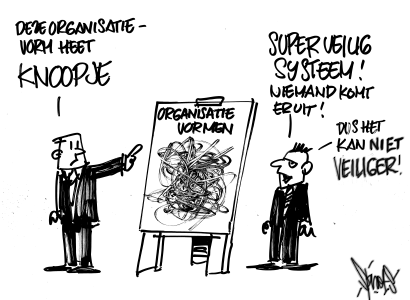 DEZE ORGANISATIE-
VORM HEET
KNOOPJE
ORGANISATIE
VORMEN
SUPER VEILIG
SYSTEEM!
NIEMAND KOMT
ERUIT!
DUS HET
KAN NIET
VEILIGER!